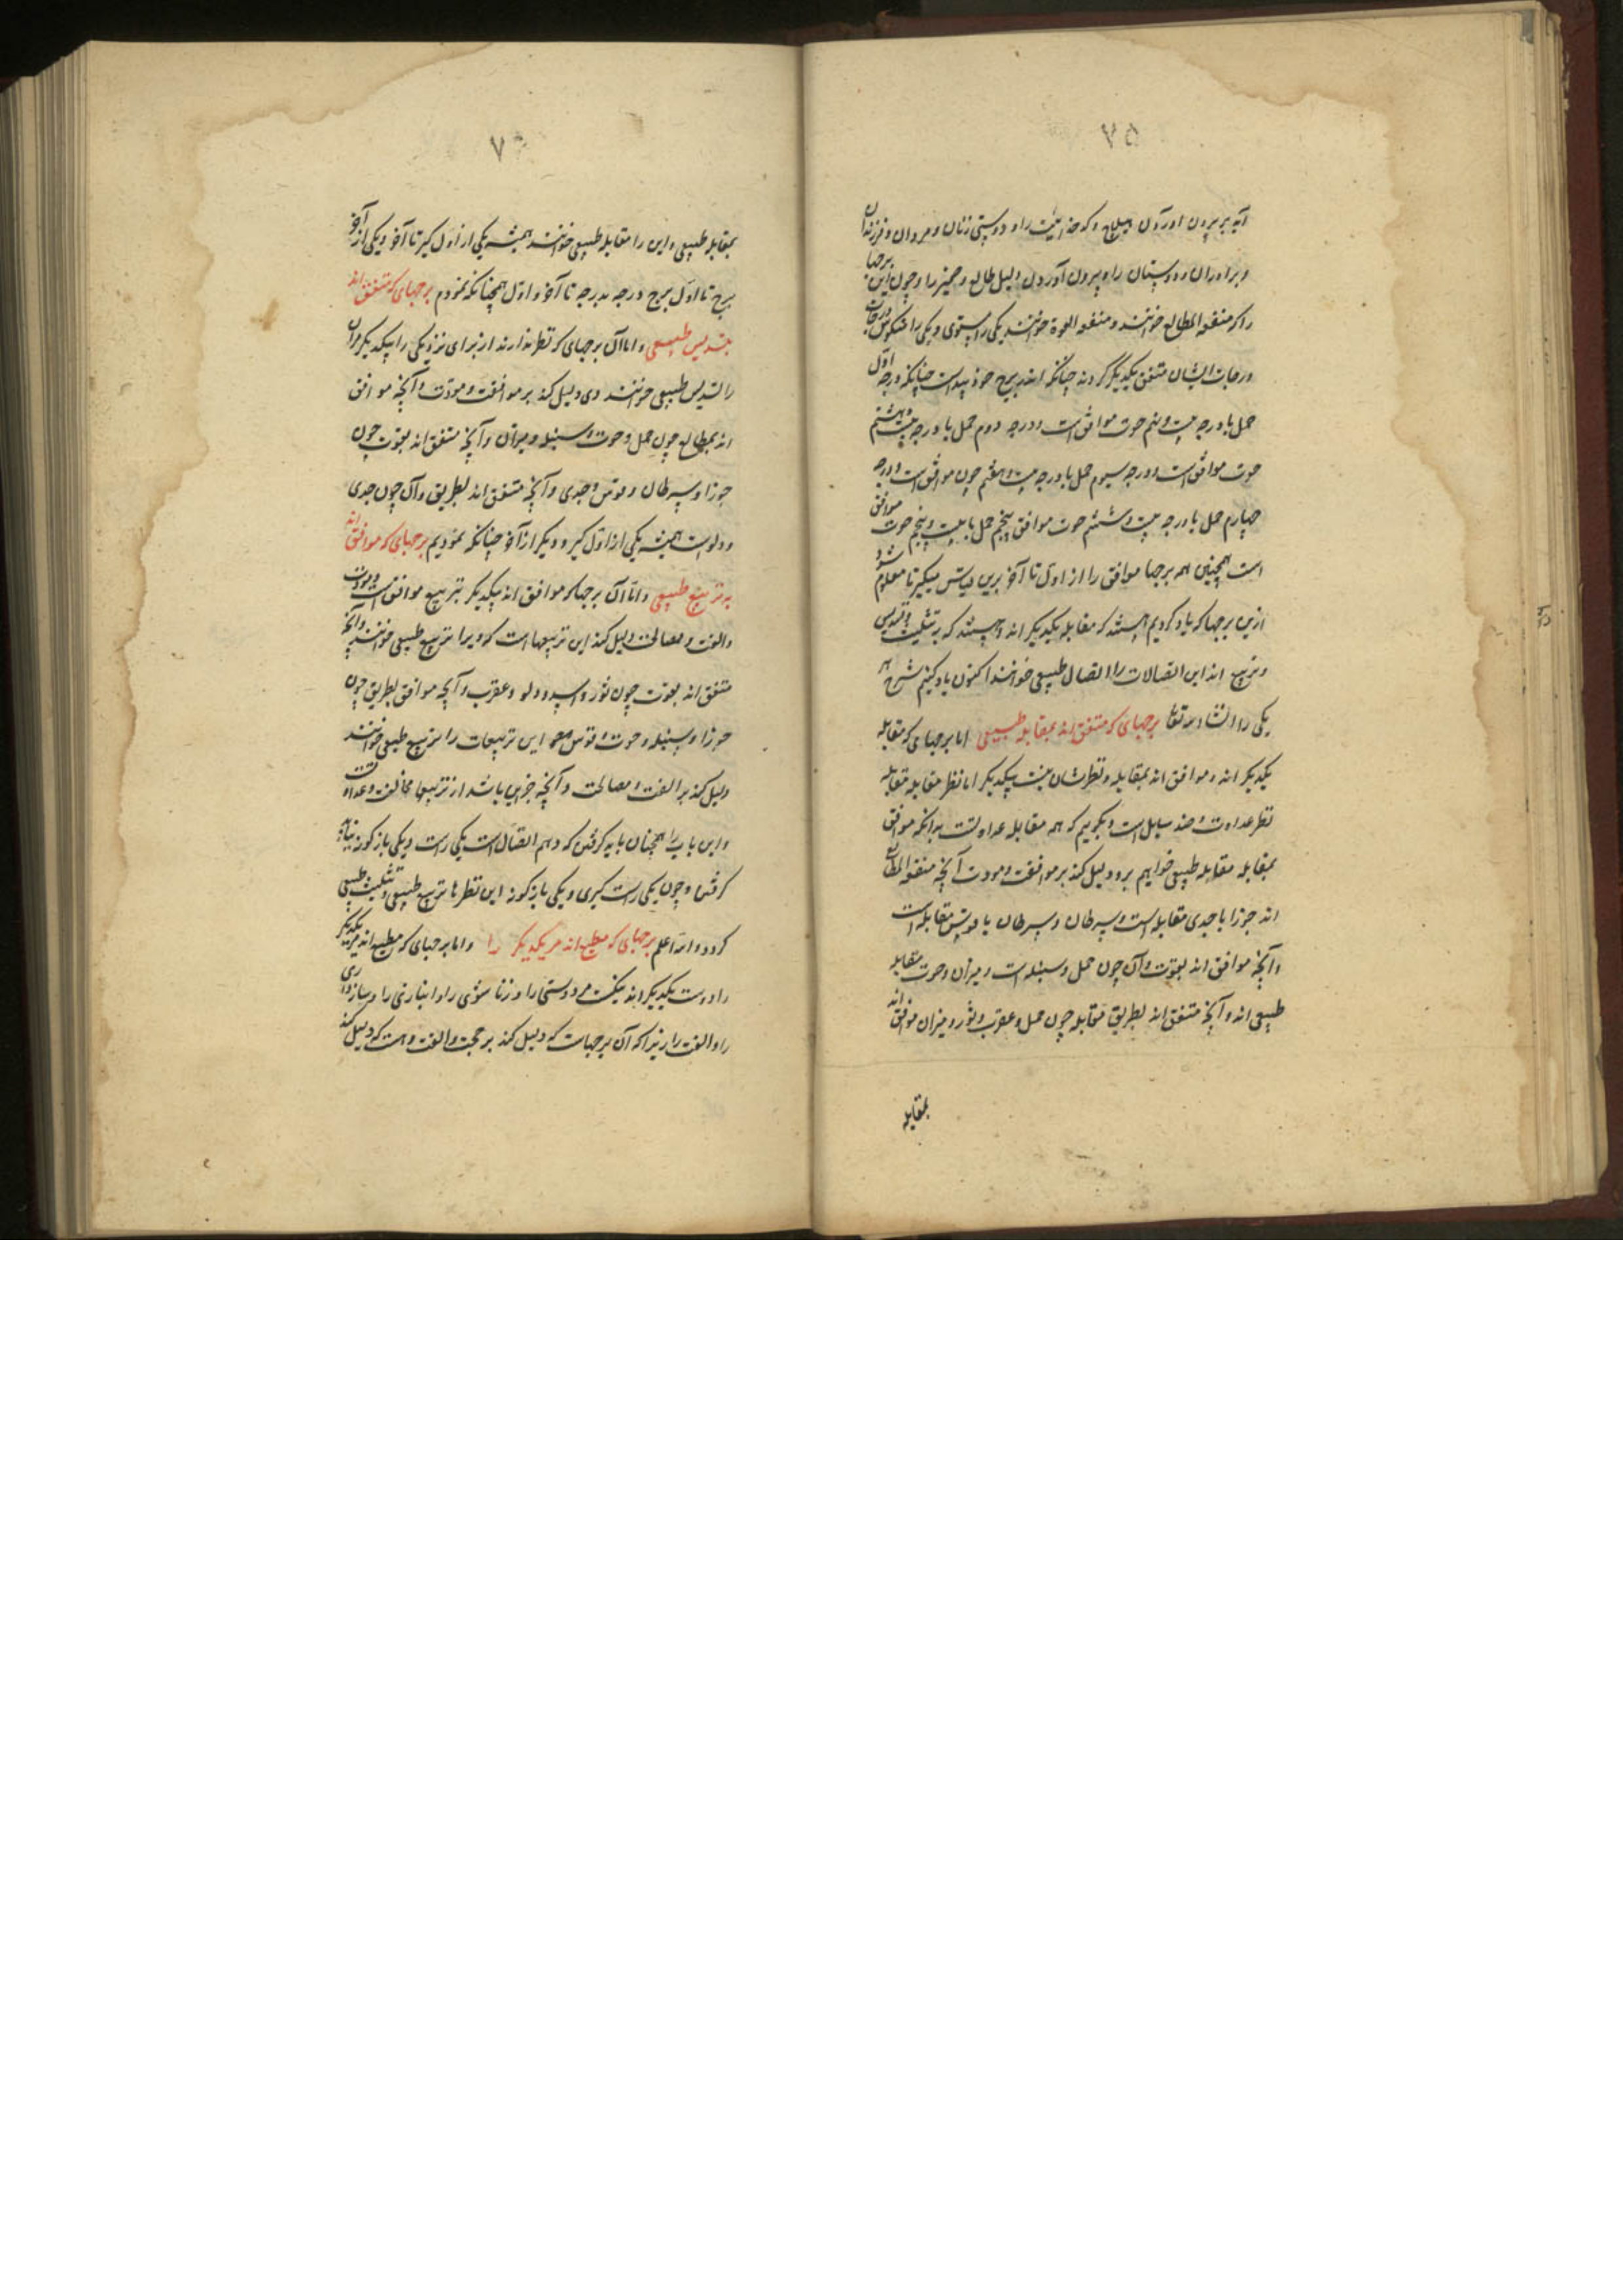 ۷۵
آید بر بیرون آوردن هیلاج و کدخدائیت را و دوستی زنان و مردان و فرزندان
و برادران و دوستان را و بیرون آوردن دلیل طالع و ضمیر را و چون این برجها
را که متفقه المطالع خوانند و متفقه القوة خوانند یکی را مستوی و یکی را معکوس درجات
درجات ایشان متفق یکدیگر گردند چنانکه اندر برج خود پیداست چنانکه درجه اول
حمل با درجه بیست و نهم حوت موافق است و درجه دوم حمل با درجه بیست و هشتم
حوت موافق است و درجه سیوم حمل با درجه بیست و هفتم حوت موافق است و درجه
چهارم حمل با درجه بیست و ششم حوت موافق پنجم حمل با بیست و پنجم حوت موافق
است همچنین همه برجها موافق را از اول تا آخر برین قیاس میگیر تا معلوم شود
ازین برجها که یاد کردیم هستند که مقابله یکدیگر اند و هستند که بر تثلیث و تسدیس
و تربیع اند این اتصالات را اتصال طبیعی خوانند اکنون یاد کنیم شرح هر
یکی را انشاء الله تعالی برجهای که متفق اند بمقابله طبیعی اما برجهای که مقابله
یکدیگر اند و موافق اند بمقابله و نظرشان نیست بیکدیگر اما نظر مقابله مقابله
نظر عداوت و ضد است و نگوییم که همه مقابله عداوتست بدانکه موافق
بمقابله مقابله طبیعی خوانیم برو دلیل کند بر موافقت و مودت آنچه متفقه المطالع
اند جوزا با جدی مقابله است و سرطان و سرطان با قوس مقابله است
و آنچه موافق اند بقوت و آن چون حمل و سنبله است و میزان و حوت مقابله
طبیعی اند و آنچه متفق اند بطریق مقابله چون حمل و عقرب و ثور و میزان موافق اند
بمقابله
۷
بمقابله طبیعی و این را مقابله طبیعی خوانند همیشه یکی از اول گیر تا آخر و یکی از آخر
برج تا اول برج درجه بدرجه تا آخر و اول همچنانکه نمودم برجهای که متفق اند
بتسدیس طبیعی و اما آن برجهای که نظر ندارند از برای نزدیکی را بیکدیگر مران
را تسدیس طبیعی خوانند وی دلیل کند بر موافقت و مودت و آنچه موافق
اند بمطالع چون حمل و حوت و سنبله و میزان و آنچه متفق اند بقوت چون
جوزا و سرطان و قوس و جدی و آنچه متفق اند بطریق و آن چون جدی
و دلوست همیشه یکی از اول گیر و دیگر از آخر چنانکه نمودیم برجهای که موافق اند
به تربیع طبیعی و اما آن برجها که موافق اند بیکدیگر بتربیع موافق است و مودت
و الفت و مصالحت دلیل کند این تربیعها است که ویرا تربیع طبیعی خوانند و آنچه
متفق اند بقوت چون ثور و اسد و دلو و عقرب و آنچه موافق بطریق چون
جوزا و سنبله و حوت و قوس این تربیعات را تربیع طبیعی خوانند
دلیل کند بر الفت و مصالحت و آنچه جز این باشد از تربیعها مخالفت و عداوت
و این باب را همچنان باید گرفتن که دهم اتصال است یکی راست و یکی بازگونه بباید
گرفتن و چون یکی راست گیری و یکی بازگونه این نظرها تربیع طبیعی و تثلیث طبیعی
گردد والله اعلم برجهای که مطیع اند مر یکدیگر را و اما برجهای که مطیع اند مر یکدیگر
را دوست یکدیگر اند نیکست مر دوستی را و زناشوئی را و انبازی را و سازواری
را و الفت را زیرا که آن برجهاست که دلیل کند بر محبت و الفت و هست که دلیل کند